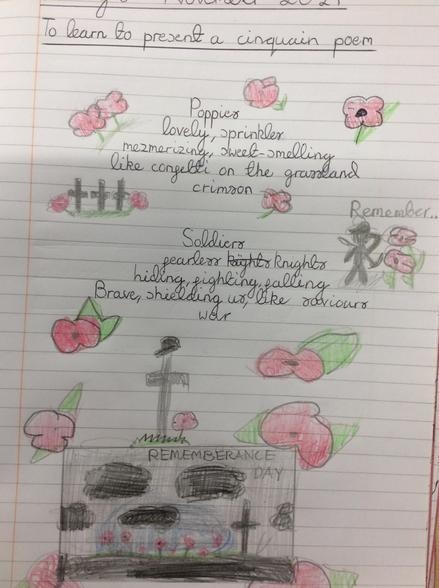 November 2021
To learn to present a cinquain poem
Poppies
lovely, sprinkler
mezmerizing, sweet-smelling
like confetti on the grassland
crimson
Remember..
Soldiers
fearless knights
hiding, fighting, falling
Brave, shielding us, like saviours
war
REMEMBERANCE
DAY